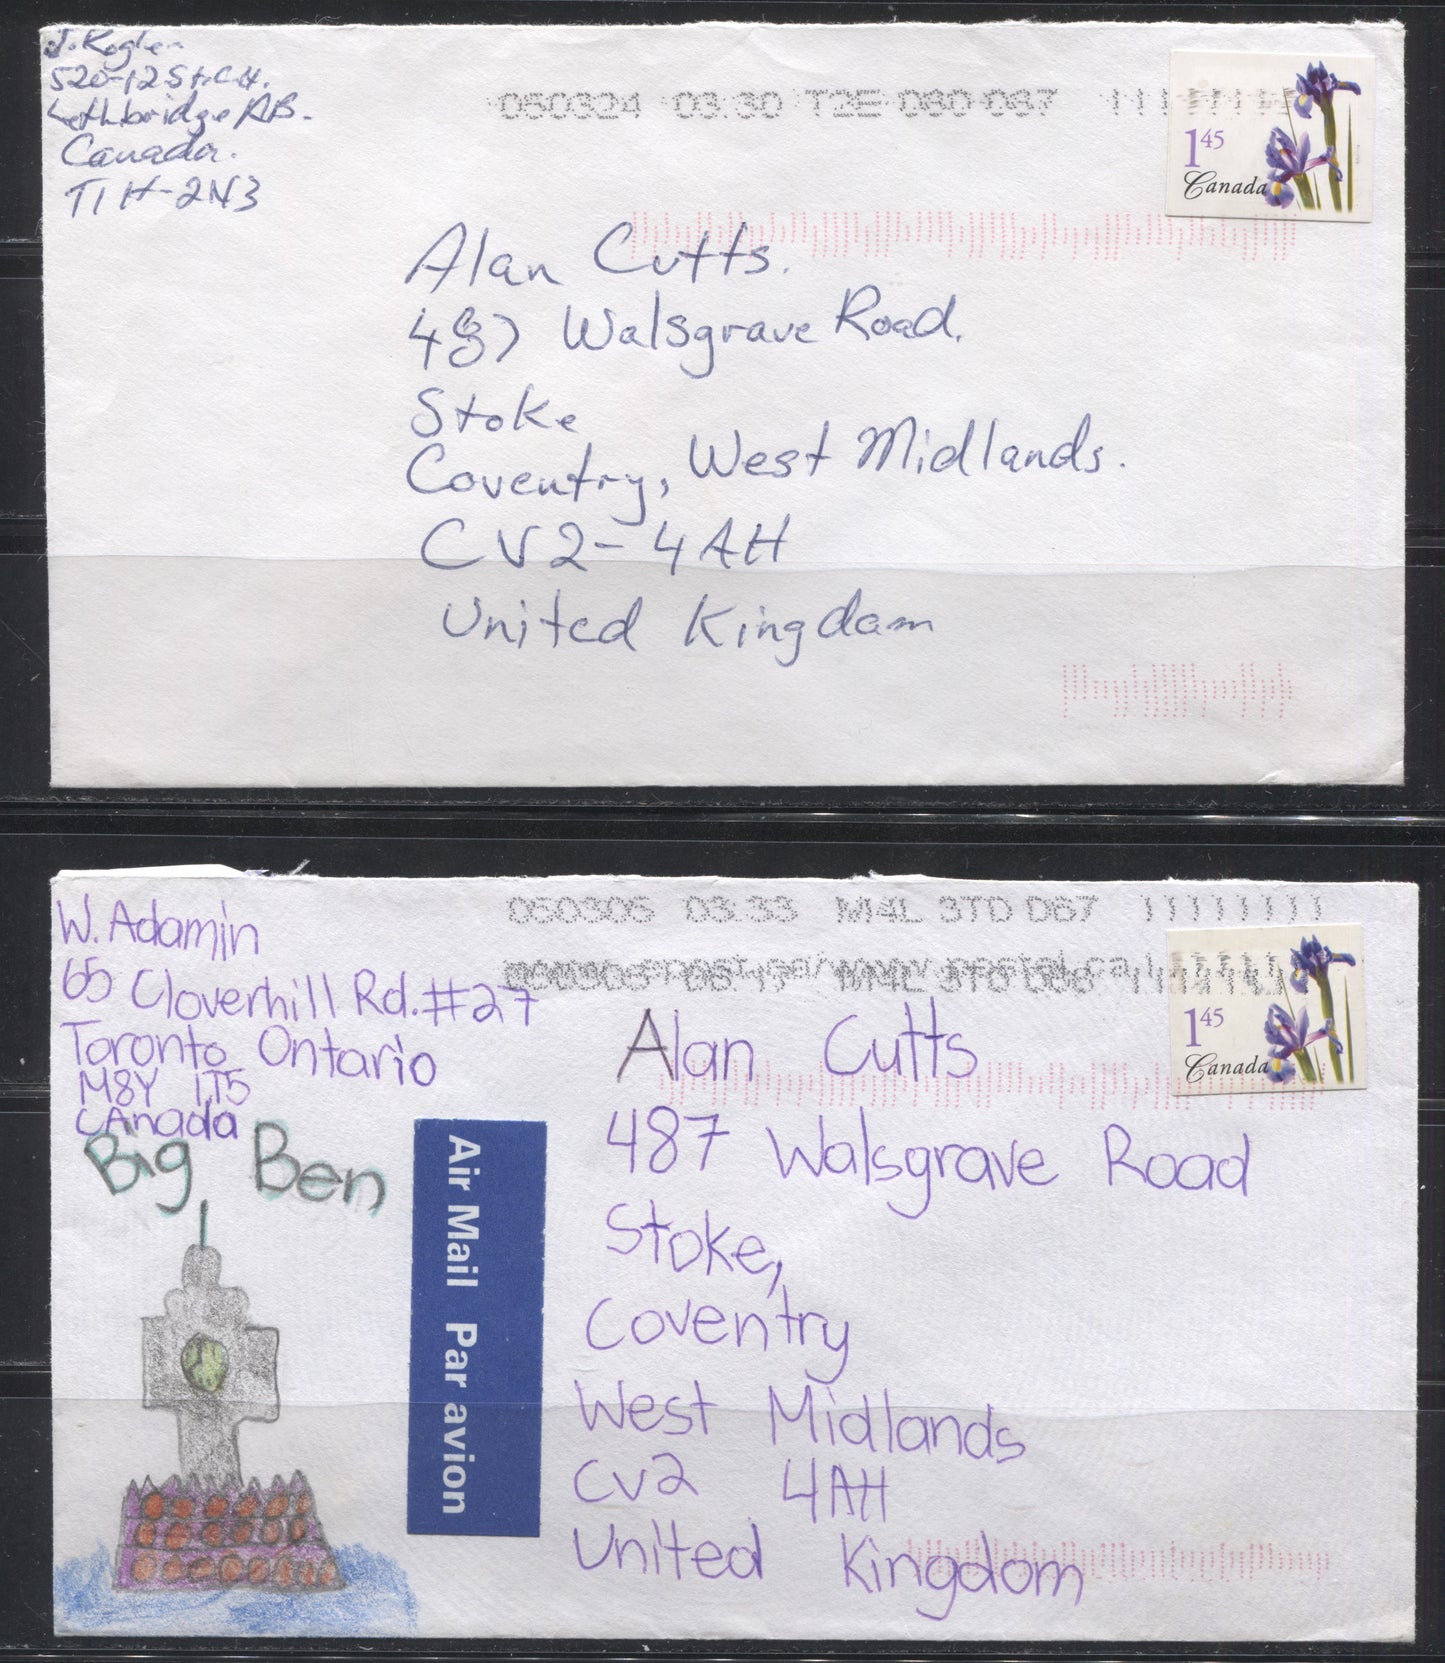 J. Kogler
520-12 St. C N.
Lethbridge AB.
Canada.
T1H-2N3
050324 03:30 T2E 080 087
1 45
Canada
Alan Cutts.
487 Walsgrave Road.
Stoke
Coventry, West Midlands.
CV2-4AH
United Kingdam
W. Adamin
65 Cloverhill Rd. #27
Toronto Ontario
M8Y 1T5
CAnada
050305 03:33 M4L 3TD D67 11111111
1 45
Canada
Big Ben
Air Mail Par avion
Alan Cutts
487 Walsgrave Road
Stoke,
Coventry
West Midlands
CV2 4AH
United Kingdom